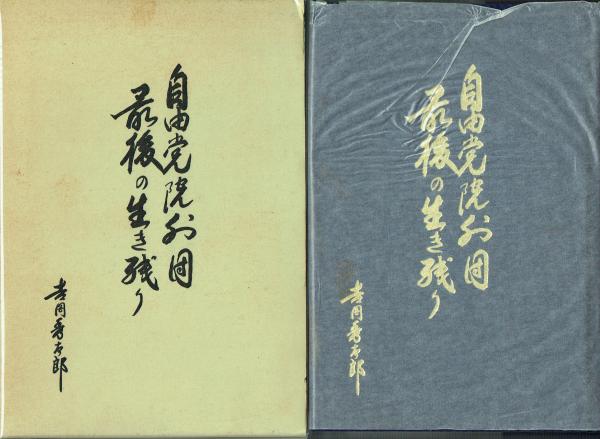 自由党院外団
最後の生き残り
吉岡秀太郎
自由党院外団
最後の生き残り
吉岡秀太郎